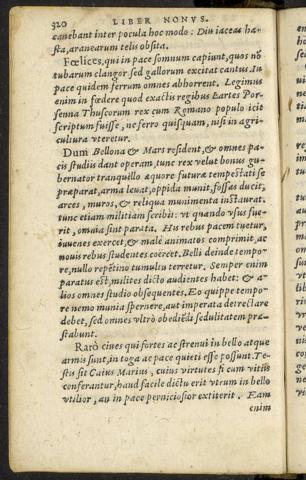 920 LIBER NONVS.
canebant inter pocula hoc modo: Diu iaceas ha-
sta, aranearum telis obsita.
Fœlices, qui in pace somnum capiunt, quos nõ
tubarum clangor sed gallorum excitat cantus. In
pace quidem ferrum omnes abhorrent. Legimus
enim in fœdere quod exactis regibus Lartes Por-
senna Thuscorum rex cum Romano populo icit
scriptum fuisse, ne ferro quisquam, nisi in agri-
cultura vteretur.
Dum Bellona & Mars resident, & omnes pa-
cis studiis dant operam, tunc rex velut bonus gu-
bernator tranquillo æquore futuræ tempestati se
præparat, arma leuat, oppida munit, fossas ducit,
arces, muros, & reliqua munimenta instaurat.
tunc etiam militiam scribit: vt quando vsus fue-
rit, omnia sint parata. His rebus pacem tuetur,
iuuenes exercet, & malè animatos comprimit, ac
nouis rebus studentes coercet. Belli deinde tempo-
re, nullo repētino tumultu terretur. Semper enim
paratus est, milites dicto audientes habet: & a-
lios omnes studio obsequentes. Eo quippe tempo-
re nemo munia spernere, aut imperata detrectare
debet, sed omnes vltrò obediēdi sedulitatem præ-
stabunt.
Rarò ciues qui fortes ac strenui in bello atque
armis sunt, in toga ac pace quieti esse possunt. Te-
stis sit Caius Marius, cuius virtutes si cum vitiis
conferantur, haud facile dictu erit vtrum in bello
vtilior, an in pace perniciosior extiterit. Eam
enim